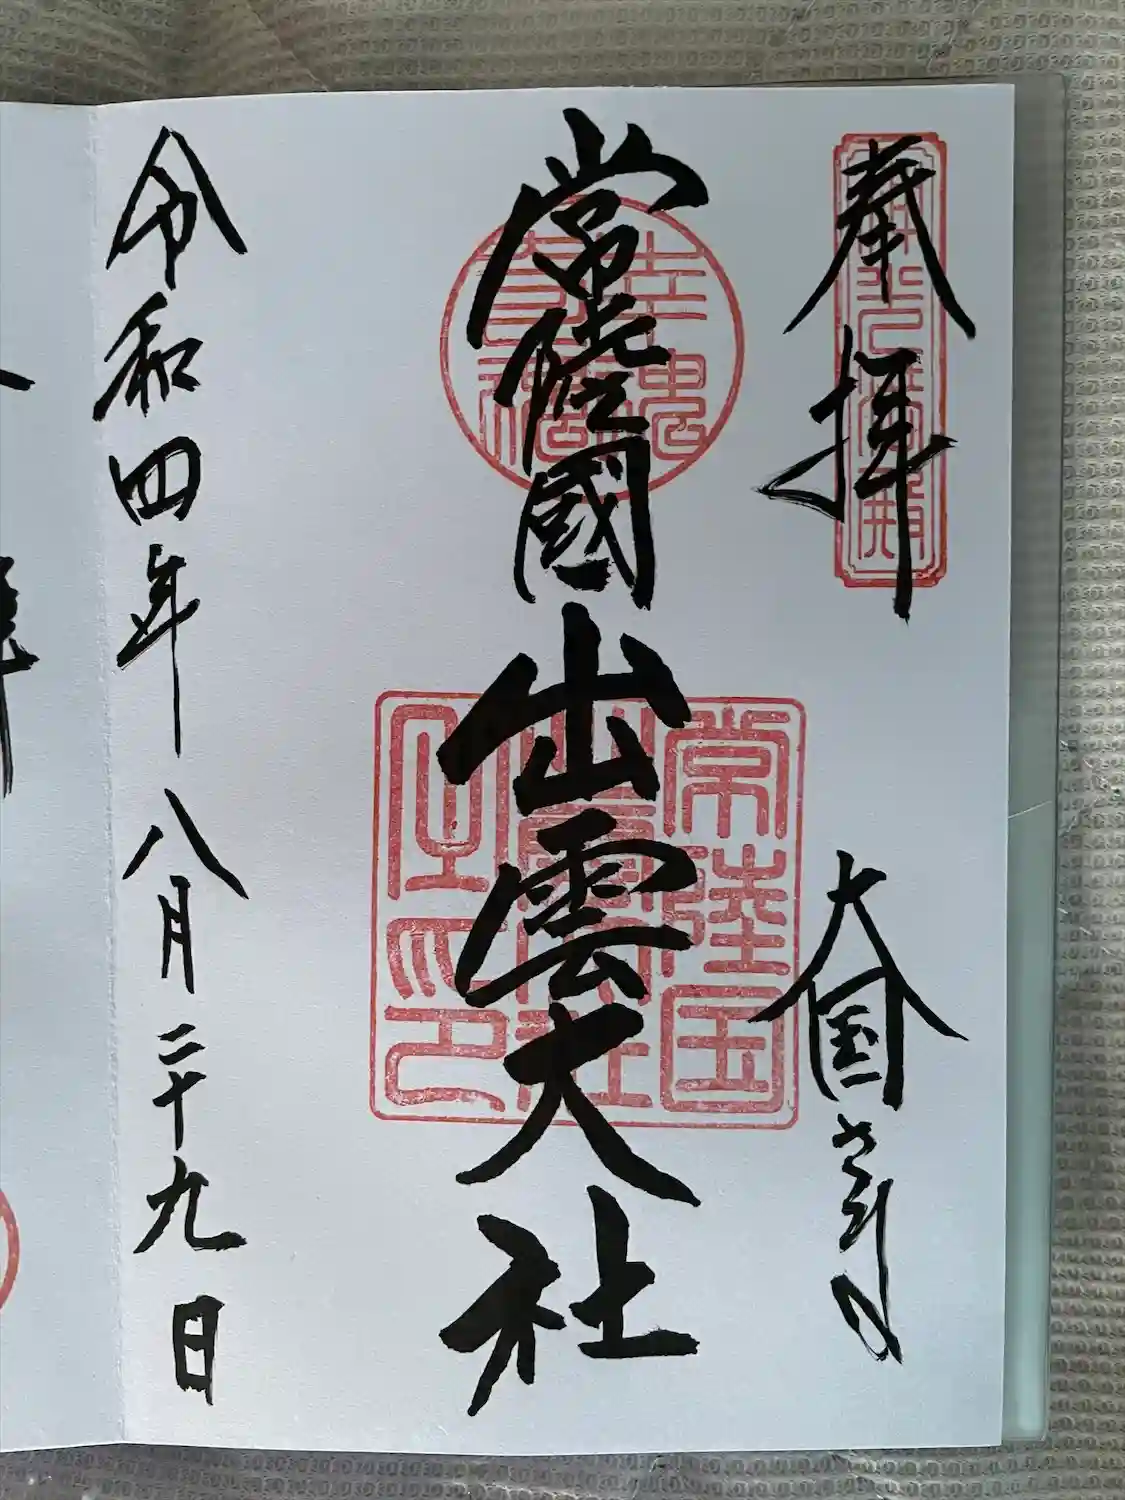 奉拝
大国さま
常陸國出雲大社
常陸国
出雲大社
之印
令和四年八月二十九日